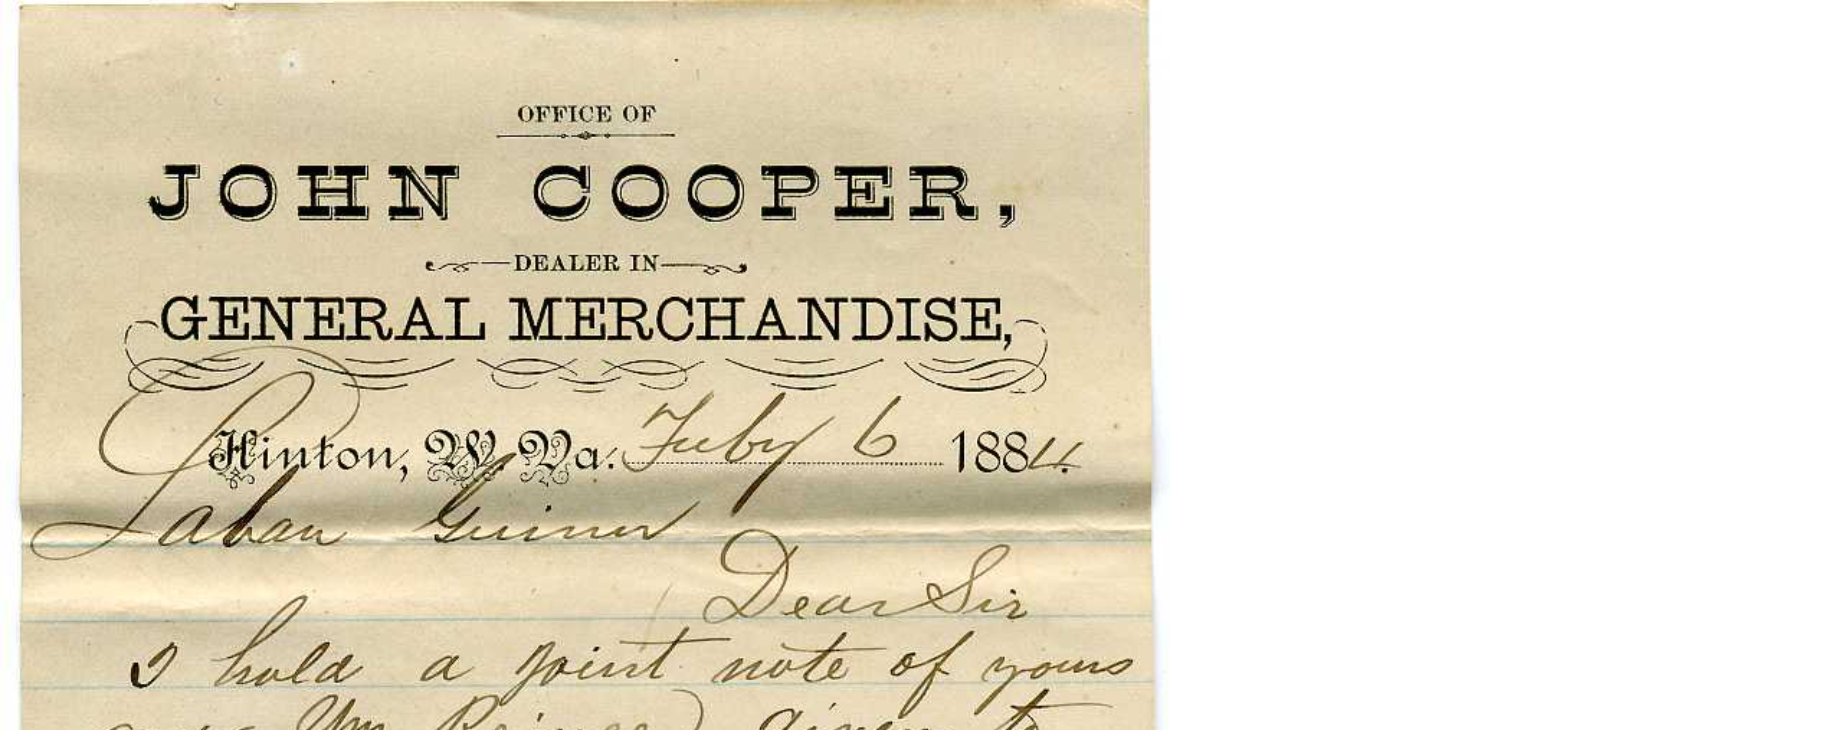 OFFICE OF
JOHN COOPER,
DEALER IN
GENERAL MERCHANDISE,
Hinton, W. Va. Feby 6 1884.
Laban Guinn
Dear Sir
I hold a joint note of yours
Wm Prince given to